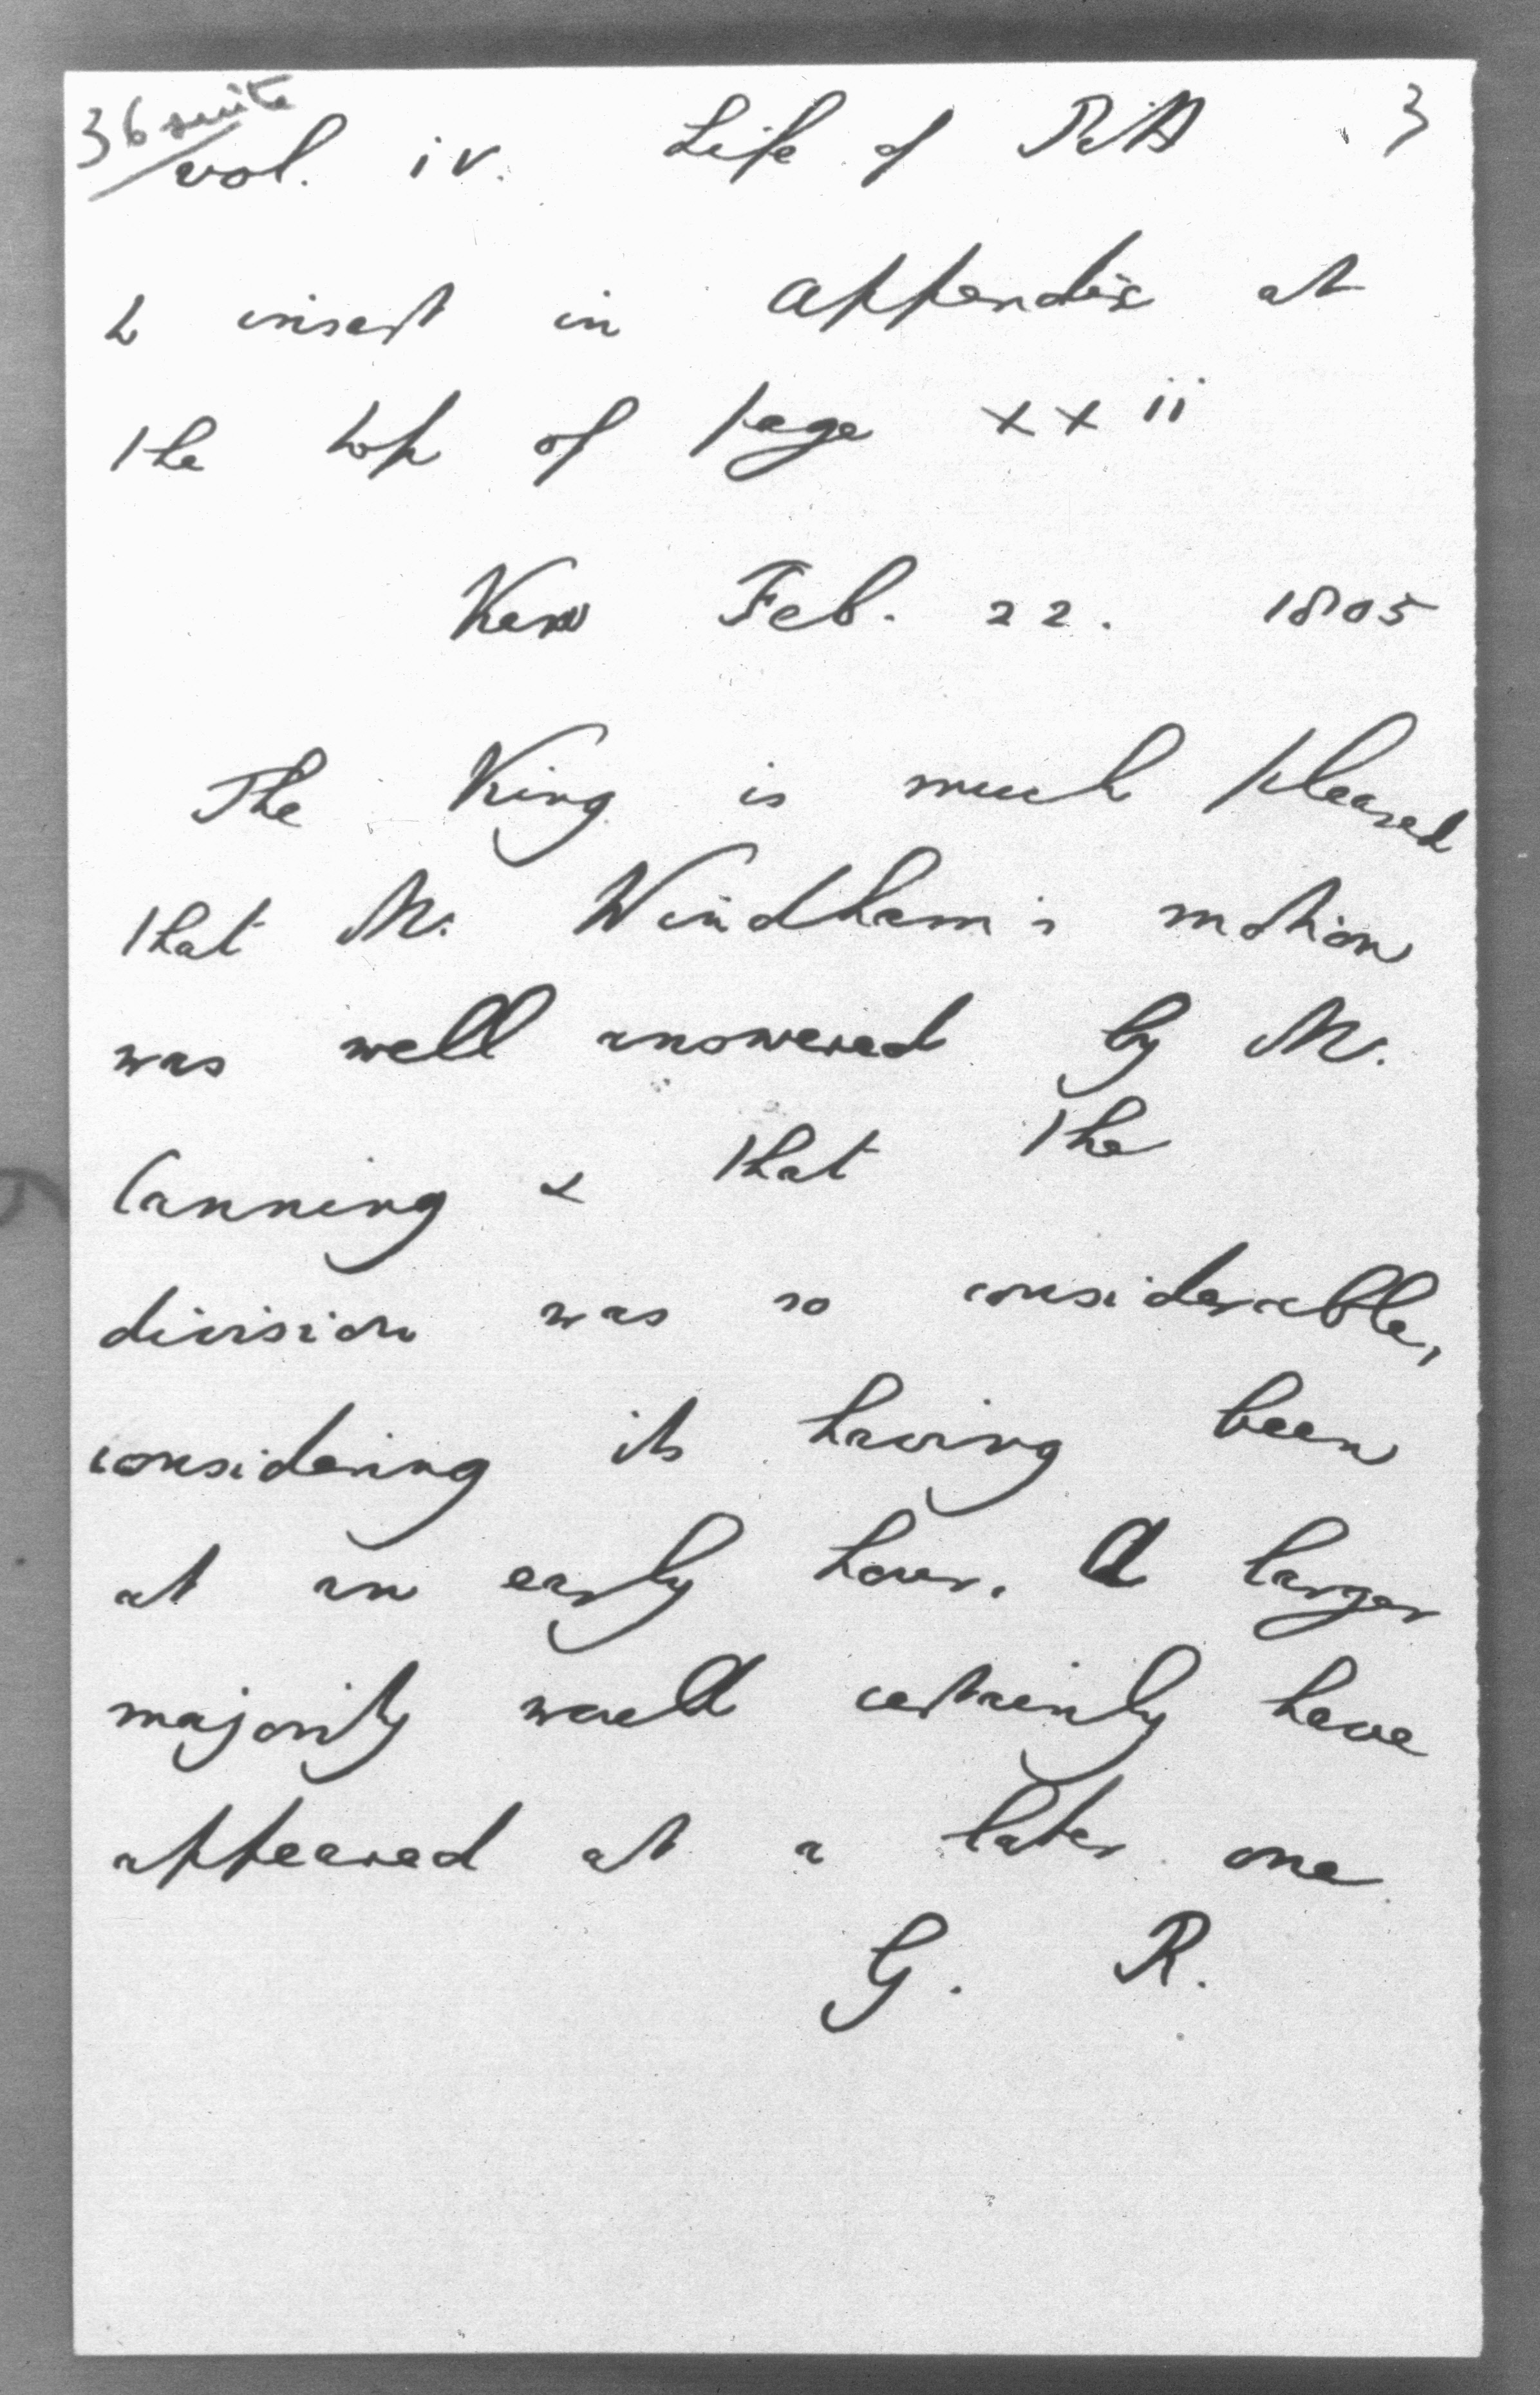 36 suite
vol. iv. Life of Pitt 3
to insert in appendix at
the top of page xxii
Kew Feb. 22. 1805
The King is much pleased
that Mr. Windham's motion
was well answered by Mr.
Canning & that the
division was so considerable,
considering its having been
at an early hour. A larger
majority would certainly have
appeared at a later one
G. R.